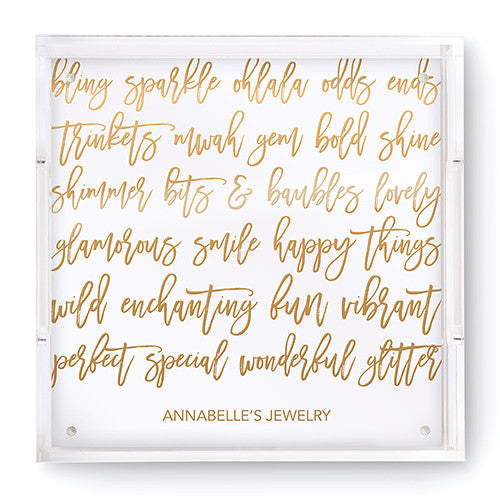 bling sparkle ohlala odds ends
trinkets mwah gem bold shine
shimmer bits & baubles lovely
glamorous smile happy things
wild enchanting fun vibrant
perfect special wonderful glitter
ANNABELLE'S JEWELRY